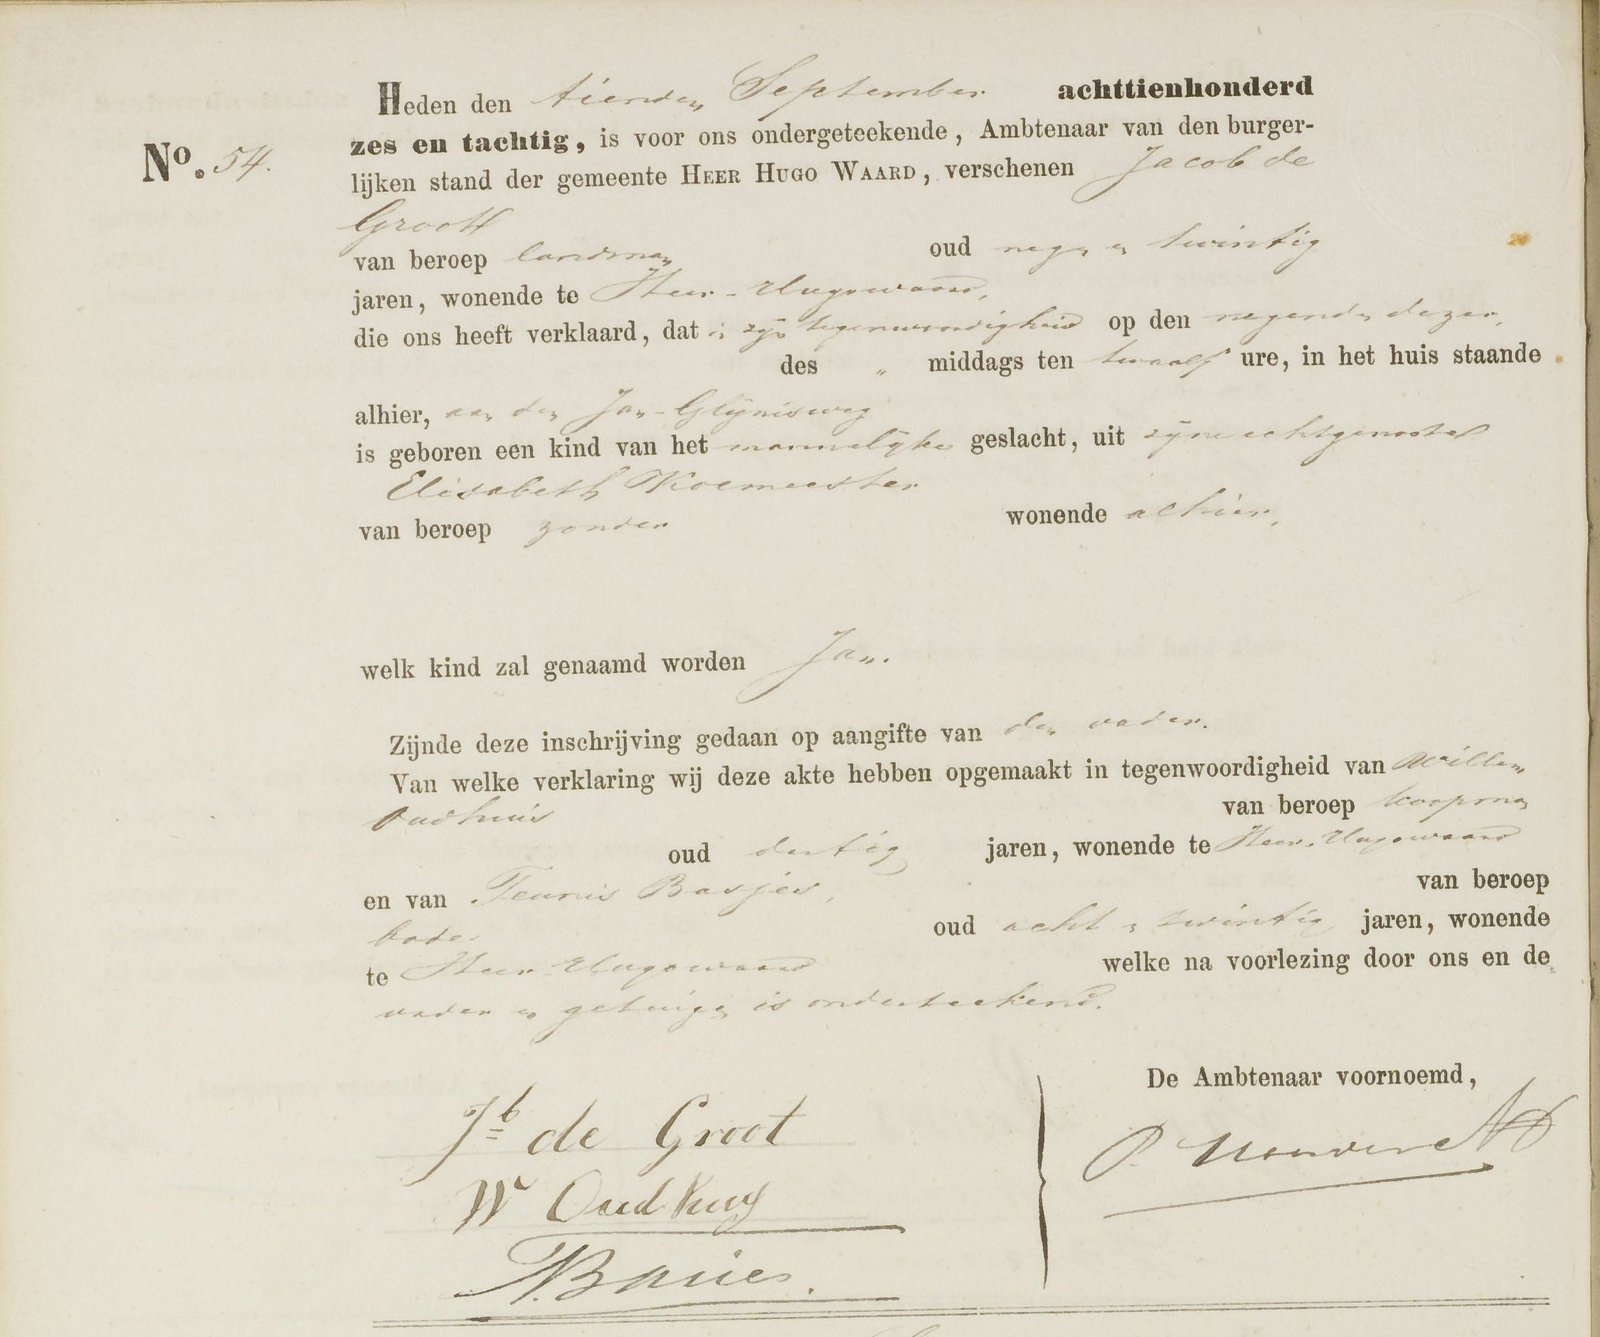 Heden den tienden September achttienhonderd
zes en tachtig, is voor ons ondergeteekende, Ambtenaar van den burger-
No. 54.
lijken stand der gemeente HEER HUGO WAARD, verschenen Jacob de
Groot
van beroep landman oud negen en twintig
jaren, wonende te Heer-Hugowaard,
die ons heeft verklaard, dat in zijn tegenwoordigheid op den negenden dezer,
des " middags ten twaalf ure, in het huis staande
alhier, aan den Jan-Glijnisweg
is geboren een kind van het mannelijke geslacht, uit zijne echtgenoote
Elisabeth Koemeester
van beroep zonder wonende alhier,
welk kind zal genaamd worden Jan.
Zijnde deze inschrijving gedaan op aangifte van den vader.
Van welke verklaring wij deze akte hebben opgemaakt in tegenwoordigheid van Willem
Oudhuis van beroep koopman
oud dertig jaren, wonende te Heer-Hugowaard
en van Teunis Basjes, van beroep
bode oud acht en twintig jaren, wonende
te Heer-Hugowaard welke na voorlezing door ons en de
vader en getuigen is onderteekend.
De Ambtenaar voornoemd,
Jb de Groot
W Oudhuys